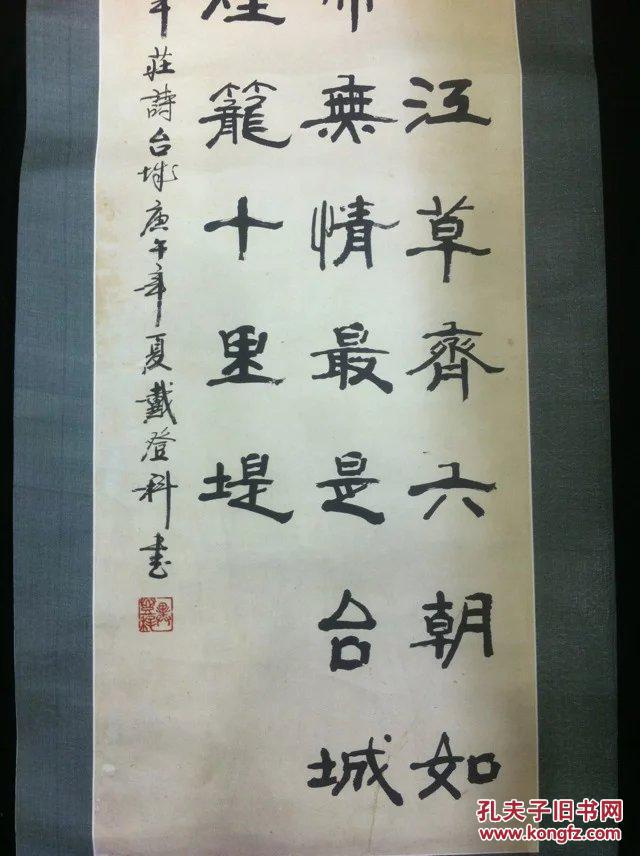 江草齊六朝如
無情最是台城
籠十里堤
莊詩台城庚午年夏戴澄科書
孔夫子旧书网
www.kongfz.com